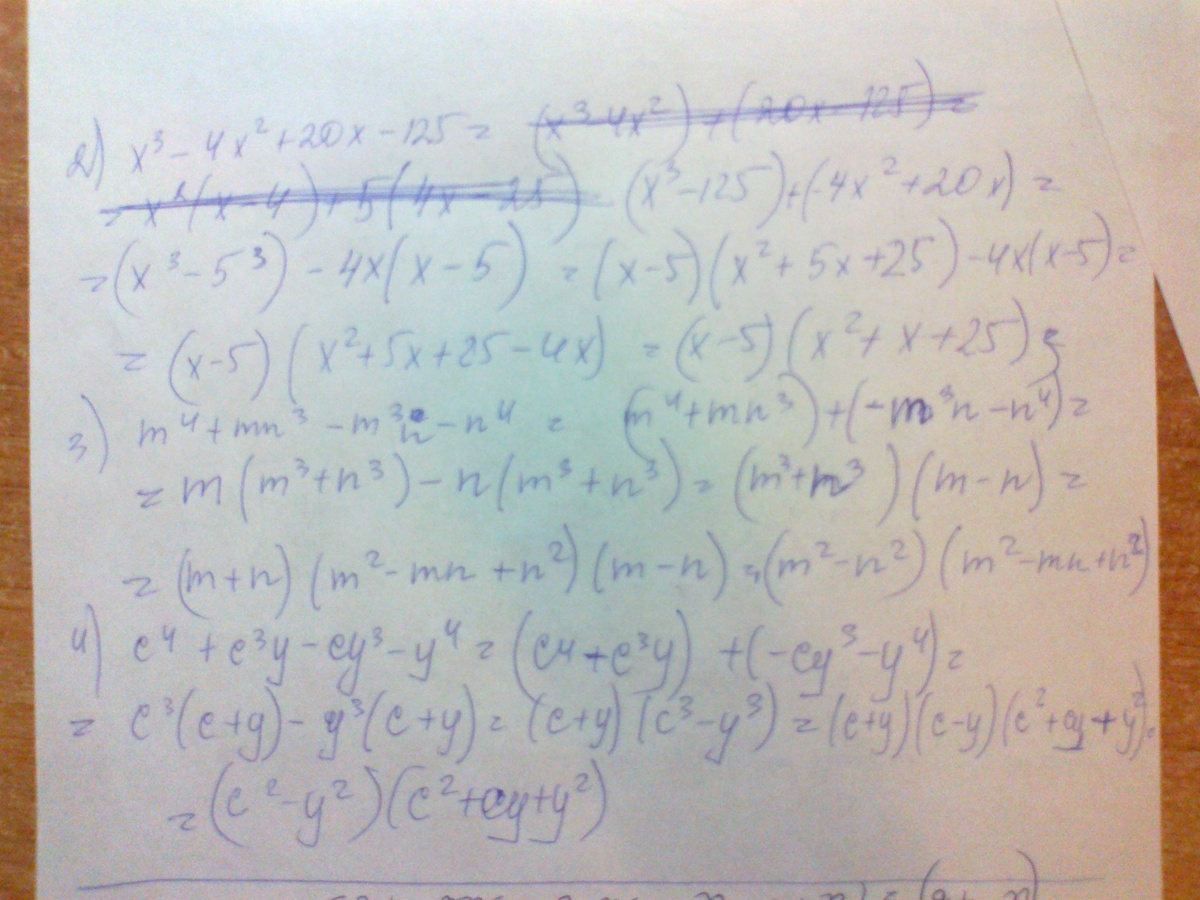 2) x³ - 4x² + 20x - 125 = (x³ 4x²) + (20x - 125) =
= x²(x-4) + 5(4x - 25) (x³ - 125) + (-4x² + 20x) =
= (x³ - 5³) - 4x(x - 5) = (x-5)(x² + 5x + 25) - 4x(x-5) =
= (x-5)(x² + 5x + 25 - 4x) = (x-5)(x² + x + 25);
3) m⁴ + mn³ - m³n - n⁴ = (m⁴ + mn³) + (-m³n - n⁴) =
= m(m³ + n³) - n(m³ + n³) = (m³ + n³)(m - n) =
= (m + n)(m² - mn + n²)(m - n) = (m² - n²)(m² - mn + n²)
4) c⁴ + c³y - cy³ - y⁴ = (c⁴ + c³y) + (-cy³ - y⁴) =
= c³(c+y) - y³(c+y) = (c+y)(c³ - y³) = (c+y)(c-y)(c² + cy + y²) =
= (c² - y²)(c² + cy + y²)